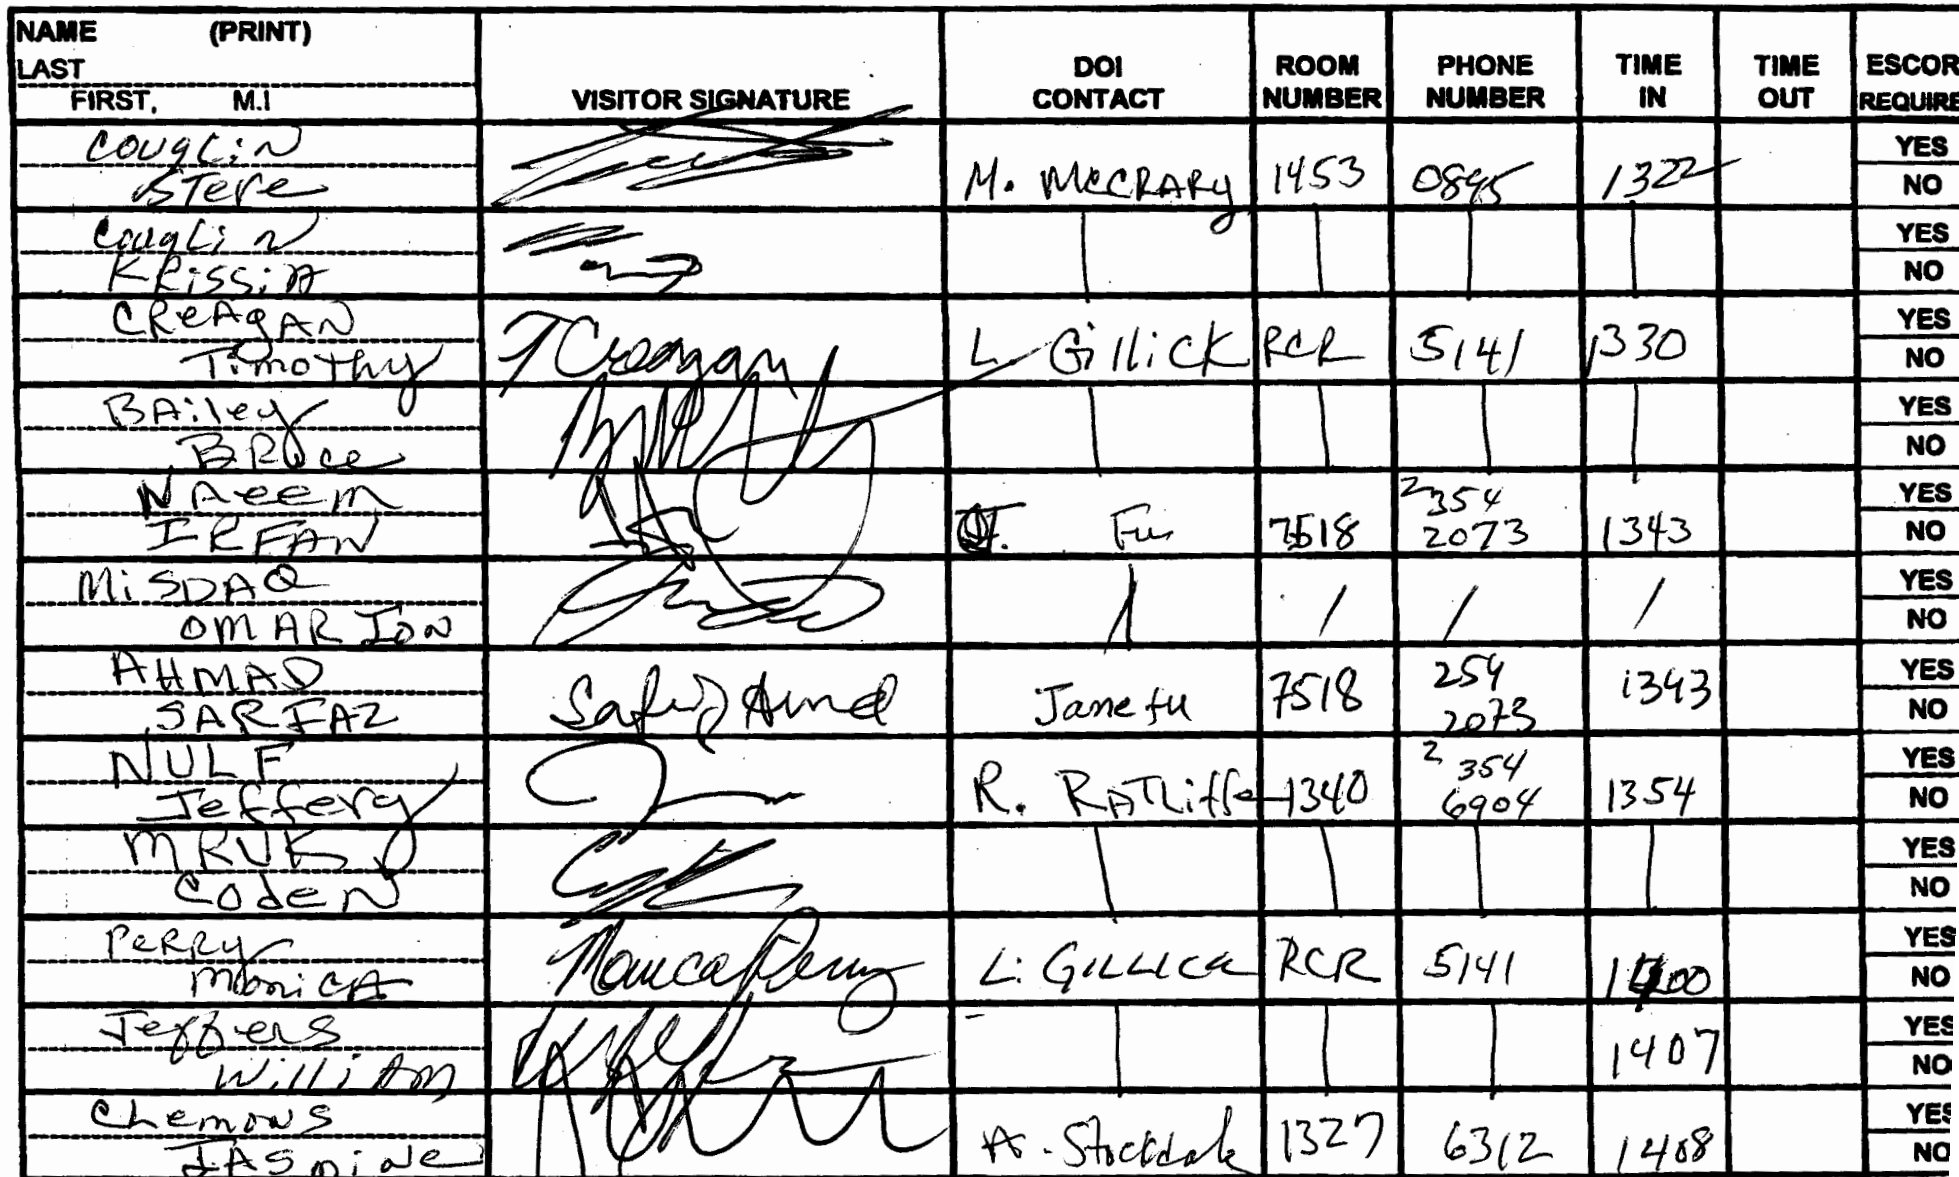 NAME (PRINT)
LAST
FIRST, M.I
VISITOR SIGNATURE
DOI CONTACT
ROOM NUMBER
PHONE NUMBER
TIME IN
TIME OUT
ESCOR
REQUIRE
COUGLIN
STEVE
M. McCRARY 1453 0895 1322
YES
NO
COUGLIN
KRISSIA
YES
NO
CREAGAN
Timothy
T Creagan
L. GilliCK RCR 5141 1330
YES
NO
BAiley
BRUce
YES
NO
NAeem
IRFAN
Fu 7518 2354 2073 1343
YES
NO
MiSDAQ
OMAR Ion
YES
NO
AHMAD
SARFAZ
Jane fu 7518 254 2073 1343
YES
NO
NULF
Jeffery
R. RATliffe 1340 2354 6904 1354
YES
NO
MRUK
CodeN
YES
NO
PeRRy
MoniCA
Monica Perry
L. GILLICK RCR 5141 1400
YES
NO
Jeffers
WilliAm
1407
YES
NO
CLemons
JASmiNe
A. Stockdale 1327 6312 1408
YES
NO